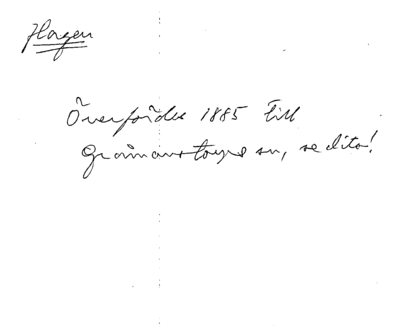 Hagen
Överfördes 1885 till
Gråmanstorps sn, se dito!